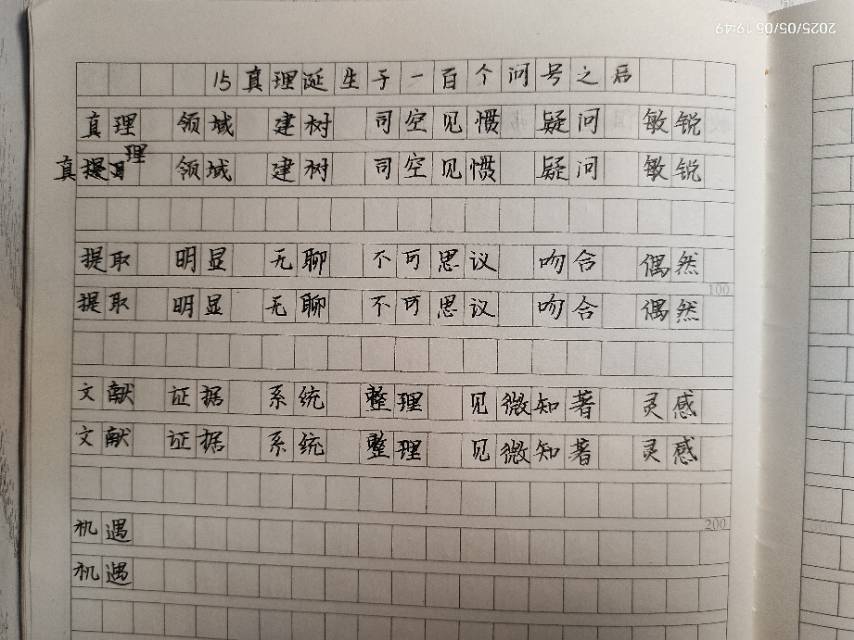 2025/05/06 19:49
15真理诞生于一百个问号之后
真理 领域 建树 司空见惯 疑问 敏锐
真理 领域 建树 司空见惯 疑问 敏锐
提取 明显 无聊 不可思议 吻合 偶然
100
提取 明显 无聊 不可思议 吻合 偶然
文献 证据 系统 整理 见微知著 灵感
文献 证据 系统 整理 见微知著 灵感
200
机遇
机遇